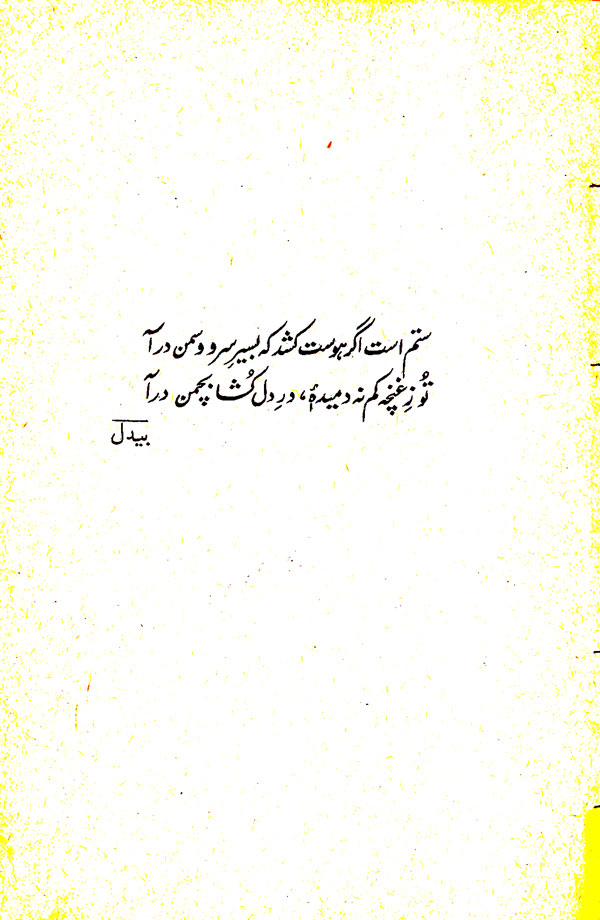 ستم است اگر ہوست کشد کہ بسیرِ سرو و سمن در آ
تُو زِ غنچہ کم نہ دمیدۂ، درِ دل کُشا بچمن در آ
بیدل